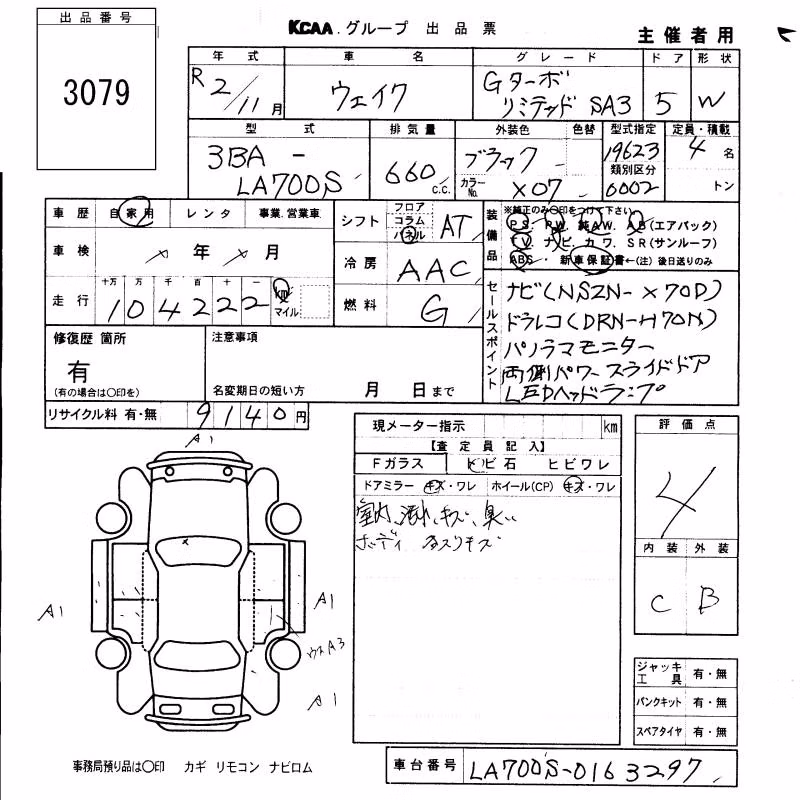 出品番号
3079
KCAA.グループ 出品票
主催者用
年式 車名 グレード ドア 形状
R2/11月 ウェイク Gターボ リミテッド SA3 5 W
型式 排気量 外装色 色替 型式指定 定員・積載
3BA-LA700S 660 c.c. ブラック カラーNo. X07 19623 4名
類別区分
0002 トン
車歴 自家用 レンタ 事業.営業車
シフト フロア コラム パネル AT
装備品 ※純正のみ○印をつけて下さい
PS. PW. 純AW. AB(エアバック)
TV. ナビ. カワ. SR(サンルーフ)
ABS. 新車保証書←(注) 後日送りのみ
車検 年 月
冷房 AAC
走行 十万 万 千 百 十 一
104222 km マイル
燃料 G
セールスポイント
ナビ(NSZN-X70D)
ドラレコ(DRN-H70N)
パノラマモニター
両側パワースライドドア
LEDヘッドランプ
修復歴 箇所
有
(有の場合は○印を)
注意事項
名変期日の短い方 月 日まで
リサイクル料 有・無 9140円
現メーター指示 km
【査定員記入】
Fガラス トビ石 ヒビワレ
ドアミラー キズ・ワレ ホイール(CP) キズ・ワレ
室内、汚れ、キズ、臭い
ボディ
評価点
4
内装 外装
C B
A1
A1
A1
A3
A1
ジャッキ工具 有・無
パンクキット 有・無
スペアタイヤ 有・無
事務局預り品は○印 カギ リモコン ナビロム
車台番号 LA700S-0163297